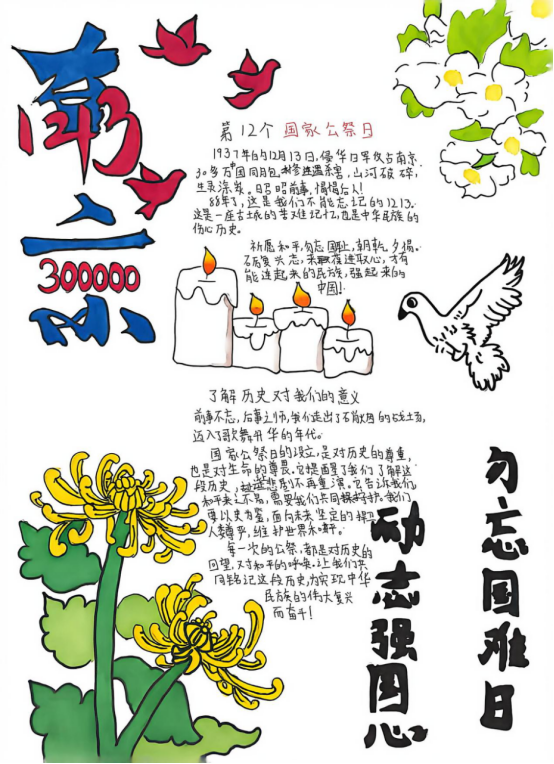 南京
1213
300000
第12个国家公祭日
1937年的12月13日，侵华日军攻占南京.
30多万中国同胞.惨遭屠杀害，山河破碎，
生灵涂炭。昭昭前事，惕惕后人！
88年了，这是我们不能忘记的1213.
这是一座古城的苦难记忆，也是中华民族的
伤心历史。
祈愿和平，勿忘国耻，朝乾夕惕.
砺复兴志，来取夜进取心，才有
能过起来的民族，强起来的
中国！
了解历史对我们的意义
前事不忘，后事之师，我们走出了石肖火因的战土场，
迈入了歌舞升华的年代。
国家公祭日的设立，是对历史的尊重，
也是对生命的尊畏。它提醒了我们了解这
段历史，悲剧不再重演。它告诉我们，
和平来之不易，需要我们共同护。我们
要以史为鉴，面向未来坚定的捍卫
人类尊严，维护世界和平。
每一次的公祭，都是对历史的
回望，对和平的呼唤，让我们共
同铭记这段历史，为实现中华
民族的伟大复兴
而奋斗！
勿忘国难日
励志强国心